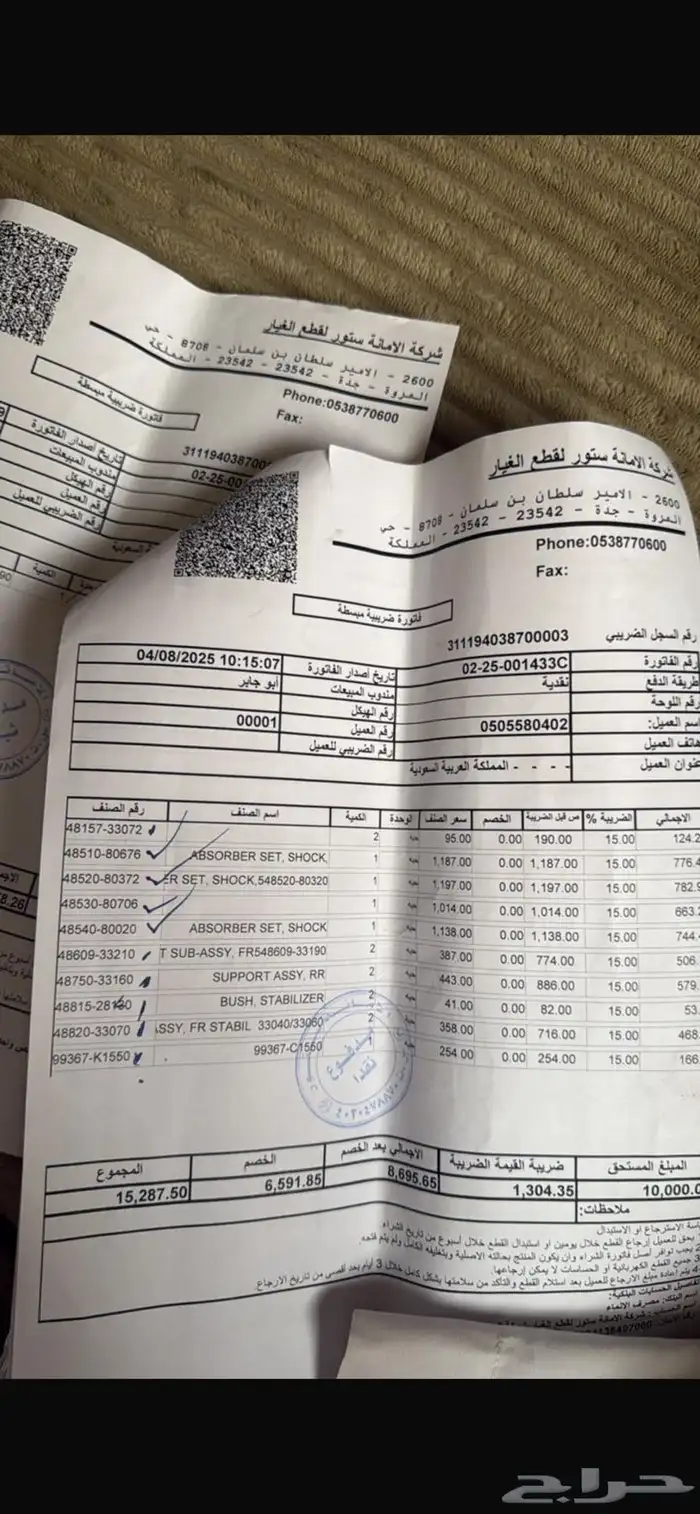 شركة الامانة ستور لقطع الغيار
2600 - الامير سلطان بن سلمان - 8708 - حي
المروة - جدة - 23542 - 23542 - المملكة
Phone:0538770600
Fax:
فاتورة ضريبية مبسطة
31119403870
02-25-00
تاريخ أصدار الفاتورة
مندوب المبيعات
رقم الهيكل
رقم العميل
رقم الضريبي للعميل
الكمية
شركة الامانة ستور لقطع الغيار
2600 - الامير سلطان بن سلمان - 8708 - حي
المروة - جدة - 23542 - 23542 - المملكة
Phone:0538770600
Fax:
فاتورة ضريبية مبسطة
رقم السجل الضريبي 311194038700003
رقم الفاتورة 02-25-001433C تاريخ أصدار الفاتورة 04/08/2025 10:15:07
طريقة الدفع نقدية مندوب المبيعات أبو جابر
رقم اللوحة رقم الهيكل
اسم العميل: 0505580402 رقم العميل 00001
هاتف العميل رقم الضريبي للعميل
عنوان العميل - - - - المملكة العربية السعودية
رقم الصنف اسم الصنف الكمية لوحدة سعر الصنف الخصم ص قبل الضريبة الضريبة % الاجمالي
48157-33072 2 حبه 95.00 0.00 190.00 15.00 124.2
48510-80676 ABSORBER SET, SHOCK, 1 حبه 1,187.00 0.00 1,187.00 15.00 776.4
48520-80372 ER SET, SHOCK,548520-80320 1 حبه 1,197.00 0.00 1,197.00 15.00 782.9
48530-80706 1 حبه 1,014.00 0.00 1,014.00 15.00 663.2
48540-80020 ABSORBER SET, SHOCK 1 حبه 1,138.00 0.00 1,138.00 15.00 744.
48609-33210 T SUB-ASSY, FR548609-33190 2 حبه 387.00 0.00 774.00 15.00 506.
48750-33160 SUPPORT ASSY, RR 2 حبه 443.00 0.00 886.00 15.00 579.
48815-28 BUSH, STABILIZER 2 حبه 41.00 0.00 82.00 15.00 53.
48820-33070 ASSY, FR STABIL 33040/33060 2 حبه 358.00 0.00 716.00 15.00 468.
99367-K1550 99367-C1550 1 حبه 254.00 0.00 254.00 15.00 166
مدفوع
نقدا
المجموع الخصم الأجمالي بعد الخصم ضريبة القيمة الضريبة المبلغ المستحق
15,287.50 6,591.85 8,695.65 1,304.35 10,000.0
ملاحظات:
سة الاسترجاع او الاستبدال
يحق للعميل إرجاع القطع خلال يومين او استبدال القطع خلال أسبوع من تاريخ الشراء.
يجب توافر أصل فاتورة الشراء وان يكون المنتج بحالتة الاصلية وبتغليفه الكامل ولم يتم فتحه.
جميع القطع الكهربائية او الحساسات لا يمكن إرجاعها.
يتم أعادة مبلغ الارجاع للعميل بعد استلام القطع والتأكد من سلامتها بشكل كامل خلال 3 أيام بحد أقصى من تاريخ الارجاع.
الحسابات البنكية:
البنك: مصرف الانماء
شركة الامانة ستور لقطع الغيار
حراج